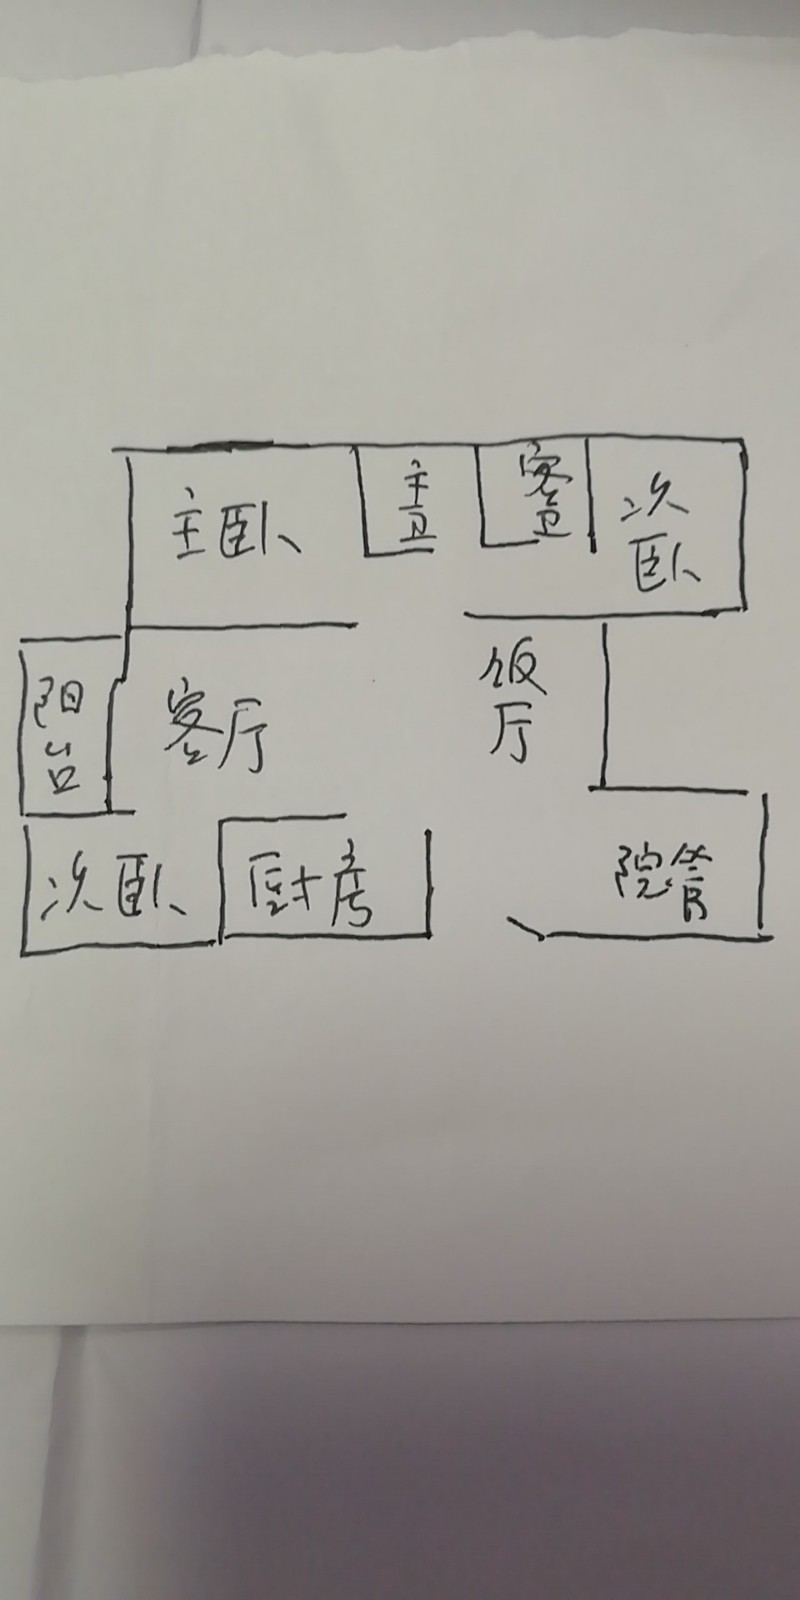 主卧
主卫
客卫
次卧
阳台
客厅
饭厅
次卧
厨房